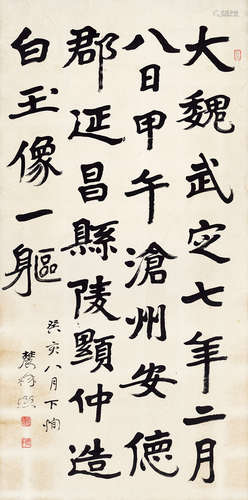 大魏武定七年二月
八日甲午滄州安德
郡延昌縣陵顯仲造
白玉像一軀
癸亥八月下澣